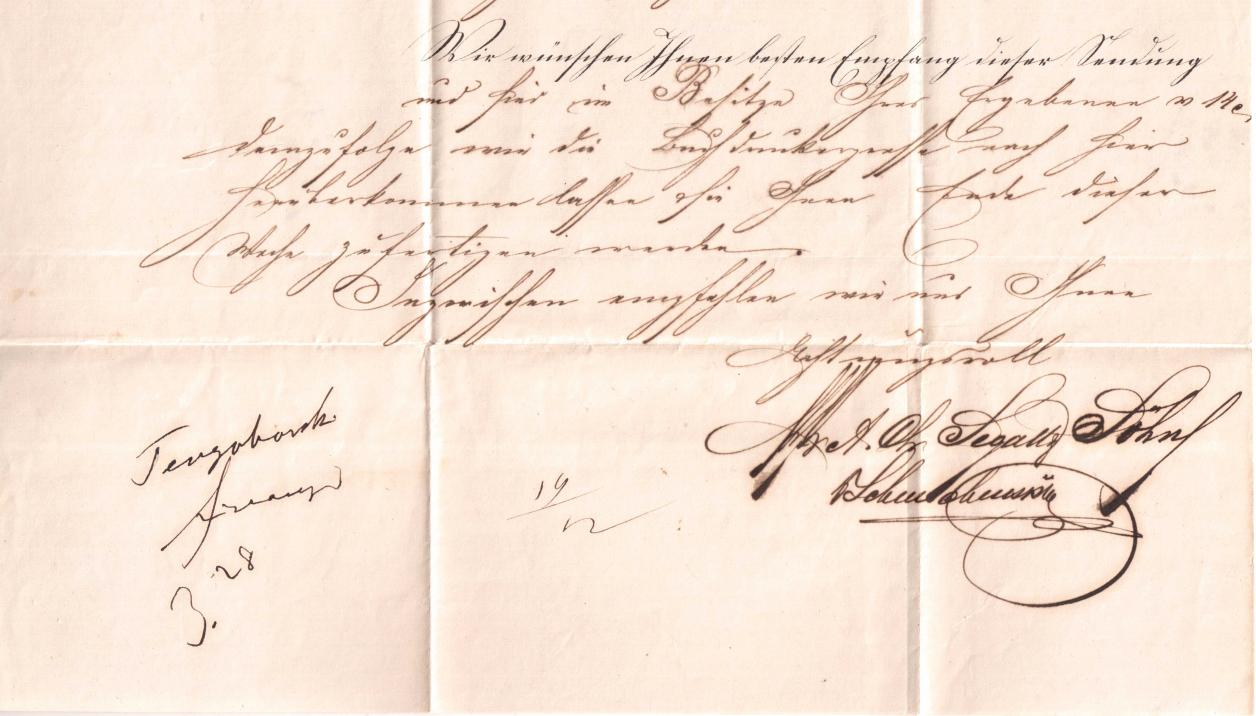 Wir wünschen Ihnen besten Empfang dieser Sendung
und sind im Besitze Ihres Ergebenen v 14 c,
demzufolge wir die Buchdruckerpresse nach hier
herüberkommen lassen & sie Ihnen Ende dieser
Woche zufertigen werden.
Inzwischen empfehlen wir uns Ihnen
Achtungsvoll
A. Segall Söhne
19/12
3. 28